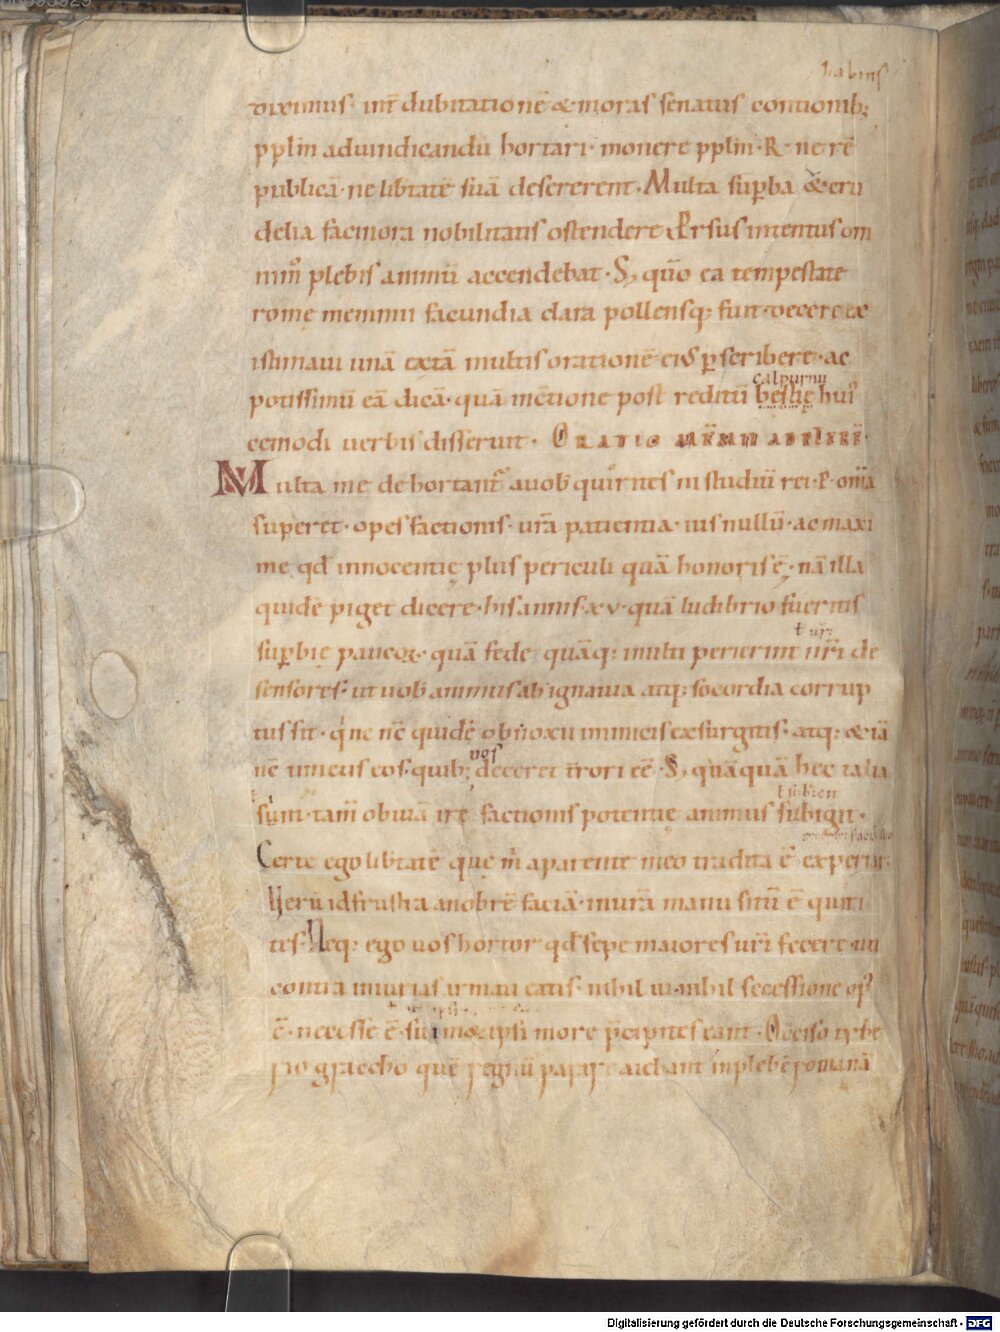 habitis
diximus int̄ dubitationē & moras senatus contionib;
pp̄lm̄ aduindicandū hortari · monere pp̄lm̄ · R · ne rē
publicā · ne lib̄tatē suā desererent · Multa sup̄ba & cru
delia facinora nobilitatis ostendere P̱rsus intentus om
nim̊ plebis animū accendebat · S; quō ea tempestate
romę memmii facundia clara pollensq; fuit · decere ex
istimaui unā ex tā multis orationē eiꝰ p̱scribere · ac
calpurnii
potissimū eā dicā · quā in c̄tione post reditū bestię huiꝰ
cemodi uerbis disseruit · ORATIO MEMMII AD PLEBE ·
Multa me dehortant̄ auob̄ quirites ni studiū rei · P · om̄ia
superet · opes factionis · ur̄a patientia · ius nullū · ac maxi
me qd̄ innocentię plus periculi quā honoris ē · nā illa
quidē piget dicere · his annis · xv · quā ludibrio fueritis
t ur̄i
sup̱bię paucoꝝ · quā fede quāq; inulti perierint ur̄i de
fensores · ut uob̄ animus ab ignauia atq; socordia corrup
tus sit · qͥ ne n̄c quidē obnoxiis inimicis exsurgitis · atq; & iā
uos
nc̄ timetis eos · quib; deceret t̄rori eē · S; quāquā hec talia
sunt · tam̄ obuiā ire factionis potentię animus subigit ·
Certe ego lib̄tatē que m̄ aparente meo tradita ē experiar
Verū id frustra anob rē faciā · inur̄a manu sitū ē quiri
tes · Neq; ego uos hortor qd̄ sepe maiores uri fecere · uti
contra iniurias armati eatis · nihil ui · nihil secessione opꝰ
ē · necesse ē suimet ipsi more p̄cipites eant · Occiso tybe
rio graccho quē regnū parare aiebant inplebē romanā
Digitalisierung gefördert durch die Deutsche Forschungsgemeinschaft - DFG